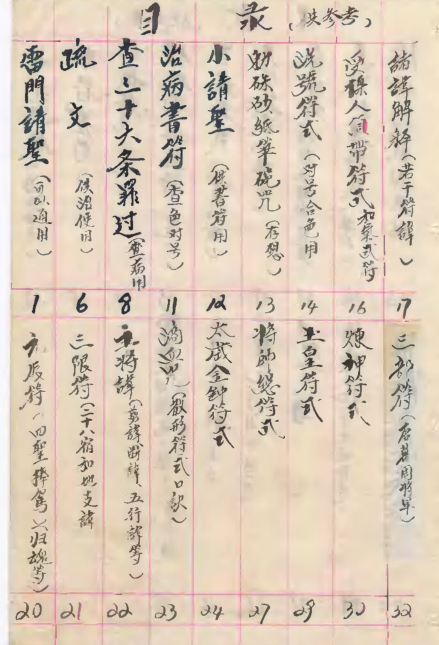 目录(供参考)
雷門請聖(可以通用) 1
疏文(供治使用) 6
查三十六条罪过(查病用) 8
治病書符(查色对号) 11
小請聖(供書符用) 12
勅硃砂紙筆碗咒(存想) 13
洗號符式(对号合色用) 14
受保人同带符式 和氣式符 16
諸諱解释(若干符諱) 17
元辰符(四聖 归魂等) 20
三限符(二十八宿和地支諱 21
天将諱(剪諱断諱、五行諱等) 22
滴血咒(数形符式口訣) 23
太歲金钟符式 24
将帅总符式 27
玉皇符式 29
煉神符式 30
三部符(石其用将军) 32